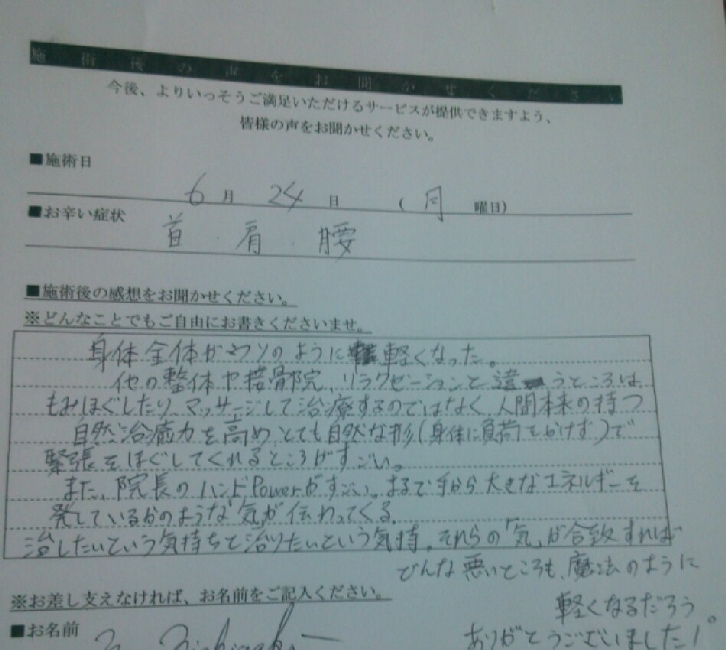 施術後の声をお聞かせください
今後、よりいっそうご満足いただけるサービスが提供できますよう、
皆様の声をお聞かせください。
■施術日
6月24日(月曜日)
■お辛い症状
首 . 肩 . 腰
■施術後の感想をお聞かせください。
※どんなことでもご自由にお書きくださいませ。
身体全体がウソのように軽くなった。
他の整体や接骨院、リラクゼーションと違うところは
もみほぐしたり、マッサージして治療するのではなく、人間本来の持つ
自然治癒力を高め、とても自然な形(身体に負荷をかけず)で
緊張をほぐしてくれるところがすごい。
また、院長のハンドPowerがすごい。まるで手から大きなエネルギーを
発しているかのような「気」が伝わってくる。
治したいという気持ちと治りたいという気持。それらの「気」が合致すれば
どんな悪いところも、魔法のように
軽くなるだろう。
ありがとうございました!。
※お差し支えなければ、お名前をご記入ください。
■お名前